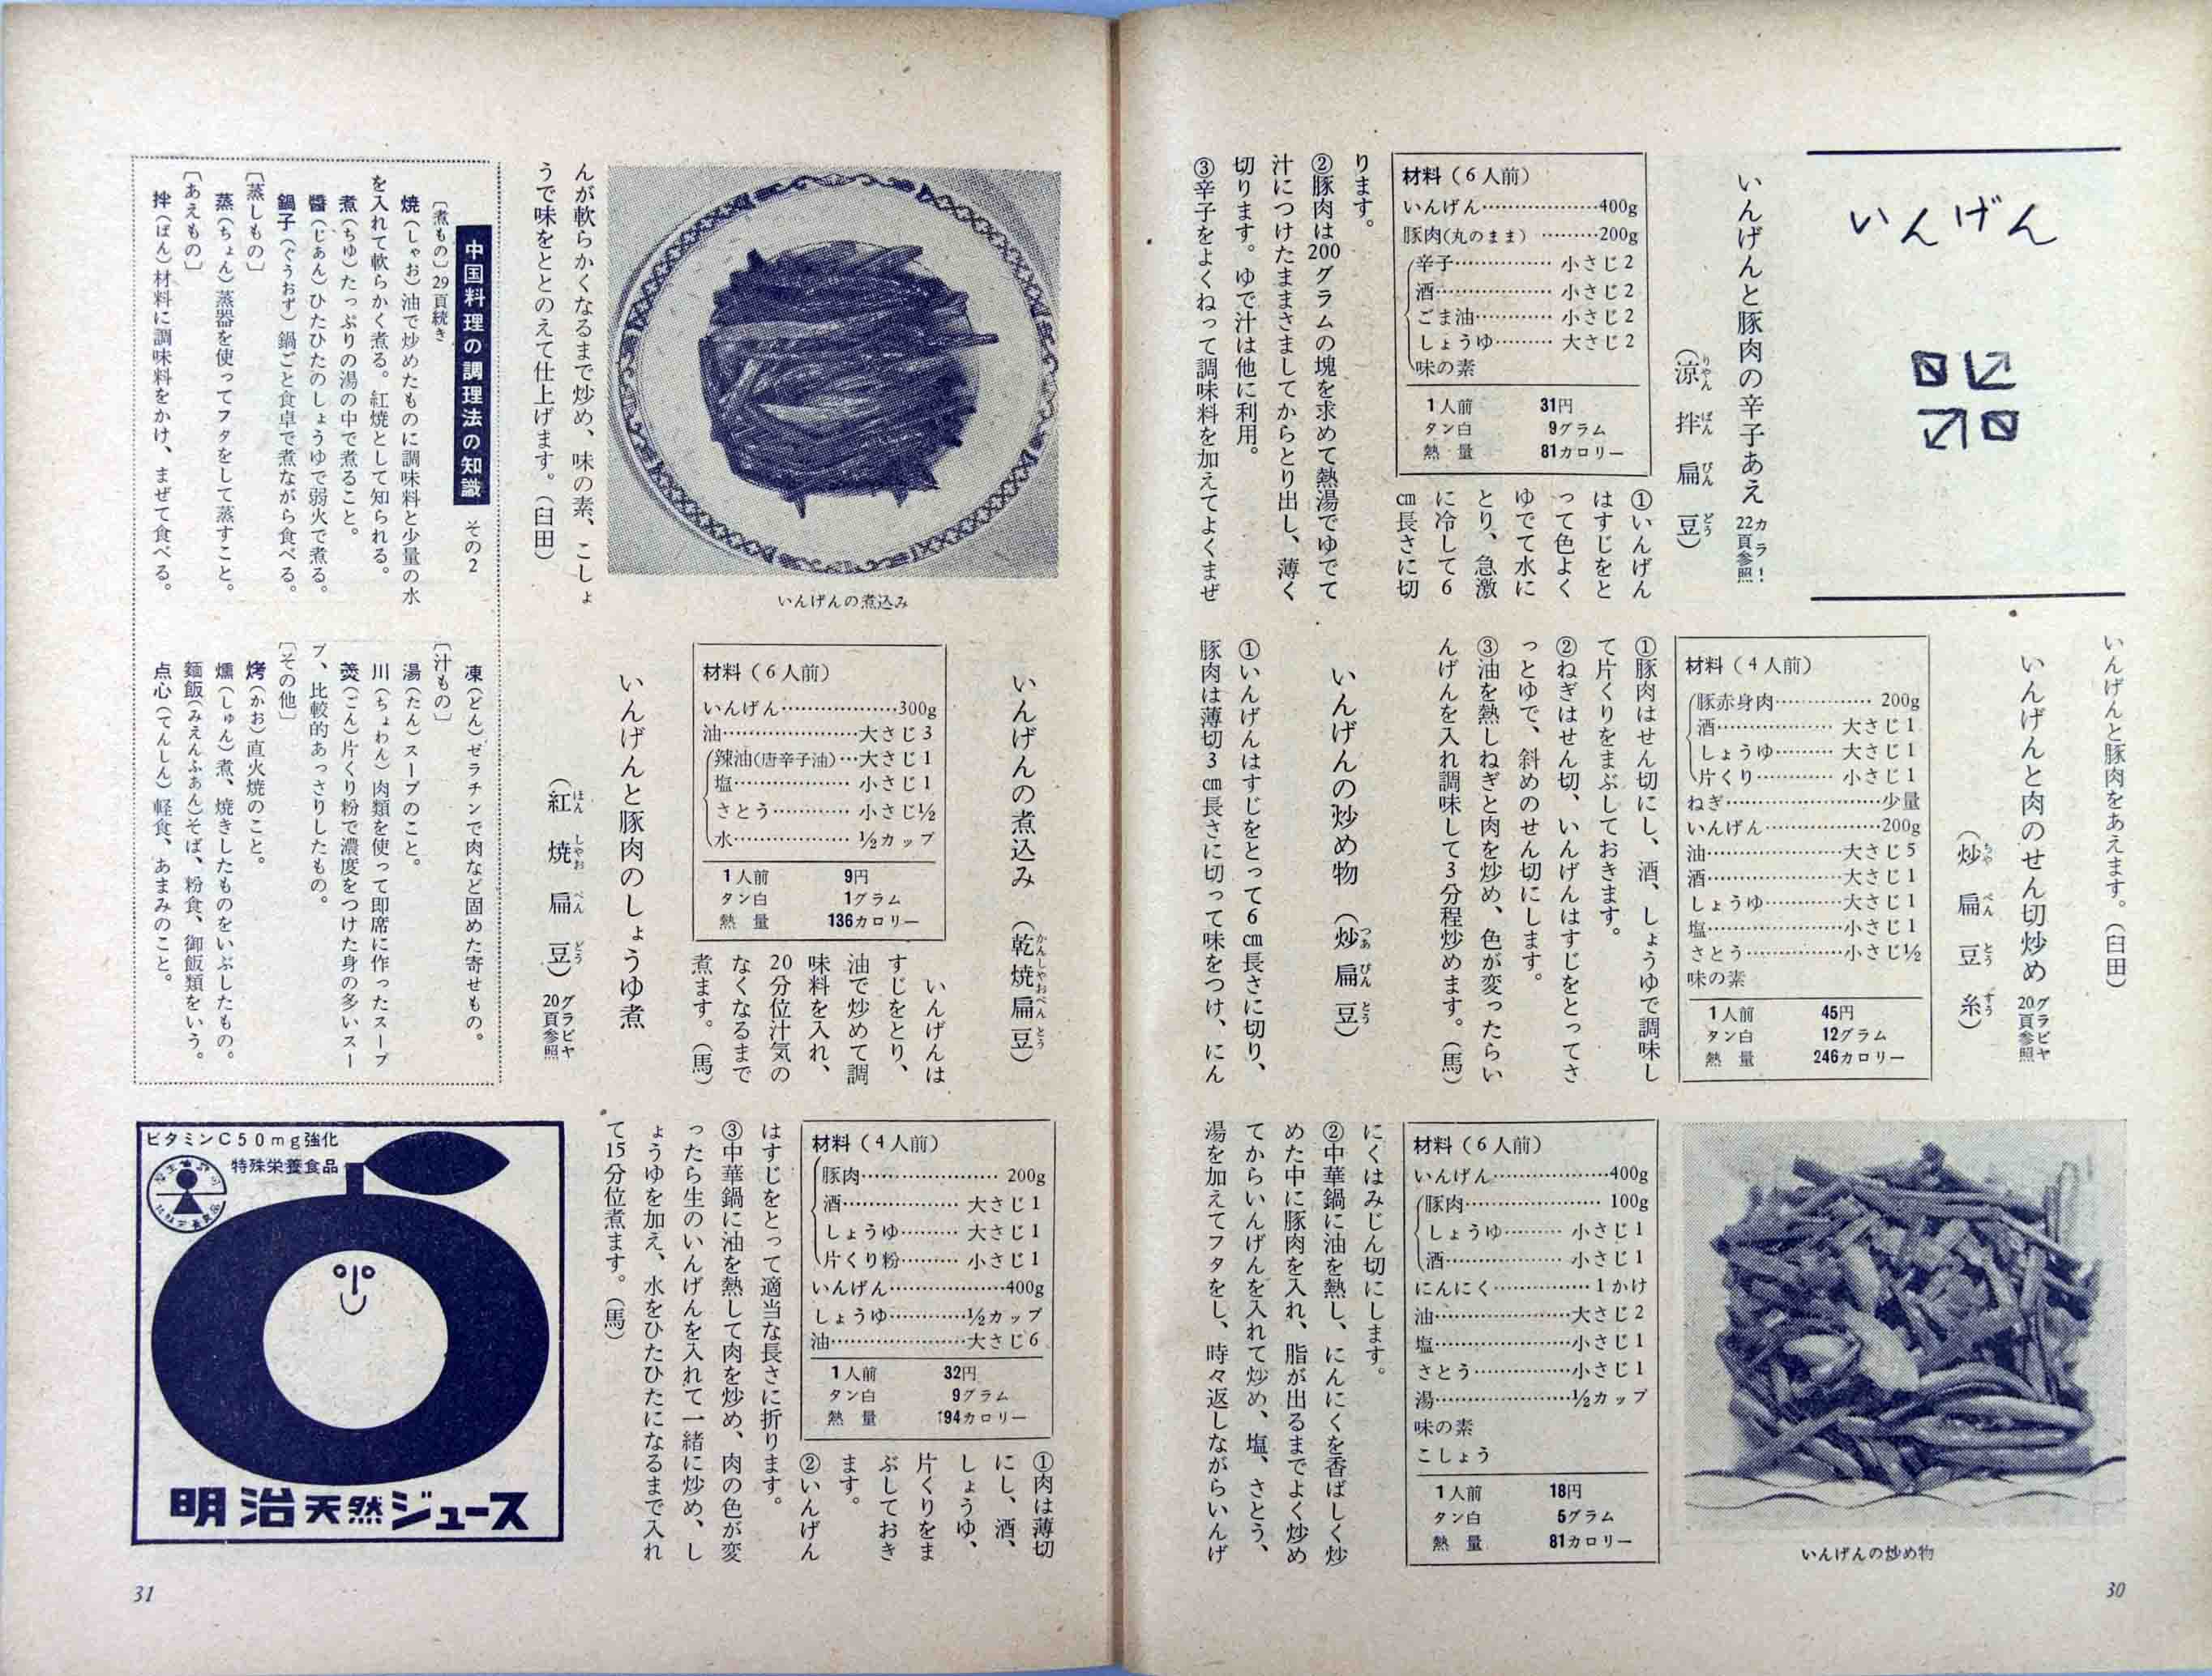 いんげん
いんげんと豚肉の辛子あえ カラー22頁参照
（涼拌扁豆）
りやん ばん びん どう
材料（6人前）
いんげん………………400g
豚肉(丸のまま)………200g
辛子……………小さじ2
酒………………小さじ2
ごま油…………小さじ2
しょうゆ………大さじ2
味の素
1人前 31円
タン白 9グラム
熱量 81カロリー
①いんげん
はすじをと
って色よく
ゆでて水に
とり、急激
に冷して6
cm長さに切
ります。
②豚肉は200グラムの塊を求めて熱湯でゆでて
汁につけたままさましてからとり出し、薄く
切ります。ゆで汁は他に利用。
③辛子をよくねって調味料を加えてよくまぜ
いんげんと豚肉をあえます。（臼田）
いんげんと肉のせん切炒め グラビヤ20頁参照
（炒扁豆糸）
ちや ぺん とう すう
材料（4人前）
豚赤身肉……………200g
酒………………大さじ1
しょうゆ………大さじ1
片くり…………小さじ1
ねぎ……………………少量
いんげん………………200g
油…………………大さじ5
酒…………………大さじ1
しょうゆ…………大さじ1
塩…………………小さじ1
さとう……………小さじ½
味の素
1人前 45円
タン白 12グラム
熱量 246カロリー
①豚肉はせん切にし、酒、しょうゆで調味し
て片くりをまぶしておきます。
②ねぎはせん切、いんげんはすじをとってさ
っとゆで、斜めのせん切にします。
③油を熱しねぎと肉を炒め、色が変ったらい
んげんを入れ調味して3分程炒めます。（馬）
いんげんの炒め物 （炒扁豆）
つあ びん とう
①いんげんはすじをとって6cm長さに切り、
豚肉は薄切3cm長さに切って味をつけ、にん
いんげんの炒め物
材料（6人前）
いんげん………………400g
豚肉…………………100g
しょうゆ………小さじ1
酒………………小さじ1
にんにく……………1かけ
油…………………大さじ2
塩…………………小さじ1
さとう……………小さじ1
湯…………………½カップ
味の素
こしょう
1人前 18円
タン白 5グラム
熱量 81カロリー
にくはみじん切にします。
②中華鍋に油を熱し、にんにくを香ばしく炒
めた中に豚肉を入れ、脂が出るまでよく炒め
てからいんげんを入れて炒め、塩、さとう、
湯を加えてフタをし、時々返しながらいんげ
30
いんげんの煮込み
んが軟らかくなるまで炒め、味の素、こしょ
うで味をととのえて仕上げます。（臼田）
いんげんの煮込み （乾焼扁豆）
かんしやおぺん とう
材料（6人前）
いんげん………………300g
油…………………大さじ3
辣油(唐辛子油)…大さじ1
塩………………小さじ1
さとう…………小さじ½
水………………½カップ
1人前 9円
タン白 1グラム
熱量 136カロリー
いんげんは
すじをとり、
油で炒めて調
味料を入れ、
20分位汁気の
なくなるまで
煮ます。（馬）
いんげんと豚肉のしょうゆ煮
（紅焼扁豆） グラビヤ20頁参照
ほん しやお ぺん どう
材料（4人前）
豚肉…………………200g
酒………………大さじ1
しょうゆ………大さじ1
片くり粉………小さじ1
いんげん………………400g
しょうゆ…………½カップ
油…………………大さじ6
1人前 32円
タン白 9グラム
熱量 194カロリー
①肉は薄切
にし、酒、
しょうゆ、
片くりをま
ぶしておき
ます。
②いんげん
はすじをとって適当な長さに折ります。
③中華鍋に油を熱して肉を炒め、肉の色が変
ったら生のいんげんを入れて一緒に炒め、し
ょうゆを加え、水をひたひたになるまで入れ
て15分位煮ます。（馬）
中国料理の調理法の知識 その2
〔煮もの〕29頁続き
焼（しゃお）油で炒めたものに調味料と少量の水
を入れて軟らかく煮る。紅焼として知られる。
煮（ちゆ）たっぷりの湯の中で煮ること。
醬（じぁん）ひたひたのしょうゆで弱火で煮る。
鍋子（ぐぅおず）鍋ごと食卓で煮ながら食べる。
〔蒸しもの〕
蒸（ちょん）蒸器を使ってフタをして蒸すこと。
〔あえもの〕
拌（ばん）材料に調味料をかけ、まぜて食べる。
凍（どん）ゼラチンで肉など固めた寄せもの。
〔汁もの〕
湯（たん）スープのこと。
川（ちょわん）肉類を使って即席に作ったスープ
羮（ごん）片くり粉で濃度をつけた身の多いスー
プ、比較的あっさりしたもの。
〔その他〕
烤（かお）直火焼のこと。
燻（しゅん）煮、焼きしたものをいぶしたもの。
麺飯（みえんふあん）そば、粉食、御飯類をいう。
点心（てんしん）軽食、あまみのこと。
ビタミンC50mg強化
特殊栄養食品
明治天然ジュース
31